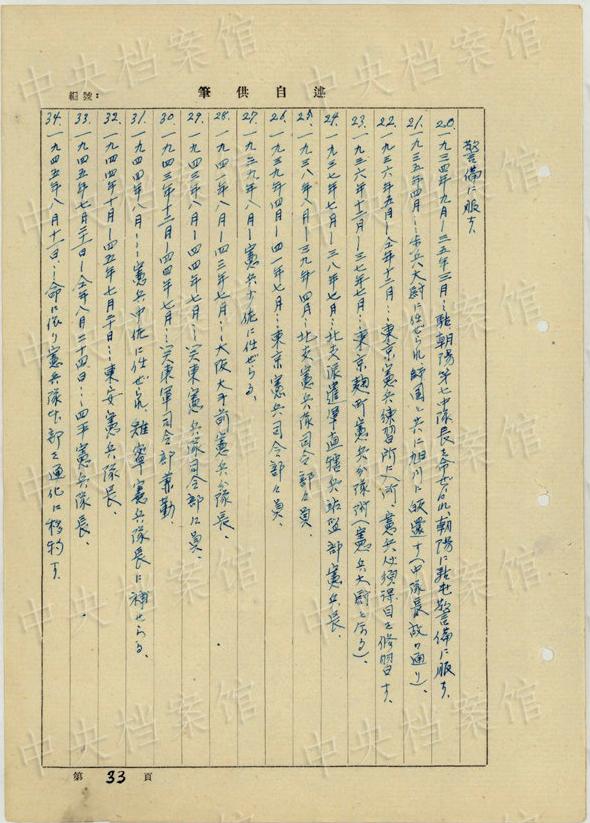 述自供筆
編號：
警備に服す、
20. 一九三四年九月－三五年三月…駐朝陽第七中隊長を命ぜられ、朝陽に駐屯警備に服す、
21. 一九三五年四月…歩兵大尉に任ぜられ帰国と共に旭川に帰還す（中隊長故の通り）、
22. 一九三六年五月－仝年十二月…東京憲兵練習所に入所、憲兵必須課目を修習す、
23. 一九三六年十二月－三七年七月…東京麹町憲兵分隊附（憲兵大尉となる）、
24. 一九三七年七月－三八年七月…北支派遣軍直轄兵站監部憲兵長、
25. 一九三八年八月－三九年四月…北支憲兵隊司令部々員、
26. 一九三九年四月－四一年七月…東京憲兵司令部々員、
27. 一九三九年八月－憲兵少佐に任ぜらる、
28. 一九四一年八月－四三年七月…大阪大手前憲兵分隊長、
29. 一九四三年八月－四四年七月…関東憲兵隊司令部々員、
30. 一九四三年十二月－四四年七月…関東軍司令部兼勤、
31. 一九四四年八月…憲兵中佐に任ぜられ、雞寧憲兵隊長に補せらる、
32. 一九四四年十月－四五年七月二十日…東安憲兵隊長、
33. 一九四五年七月二十一日－仝年八月二十四日…四平憲兵隊長、
34. 一九四五年八月十二日…命に依り憲兵隊本部を通化に移動す、
第 33 頁
中央档案馆